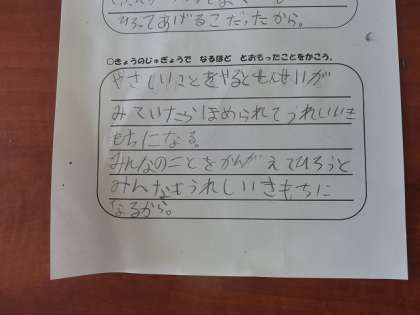 ひろってあげるこだったから。
○きょうのじゅぎょうで なるほど とおもったことをかこう。
やさしいことをやるともんせいが
みていたらほめられてうれしいき
もちになる。
みんなのことをかんがえてひろうと
みんなもうれしいきもちに
なるから。